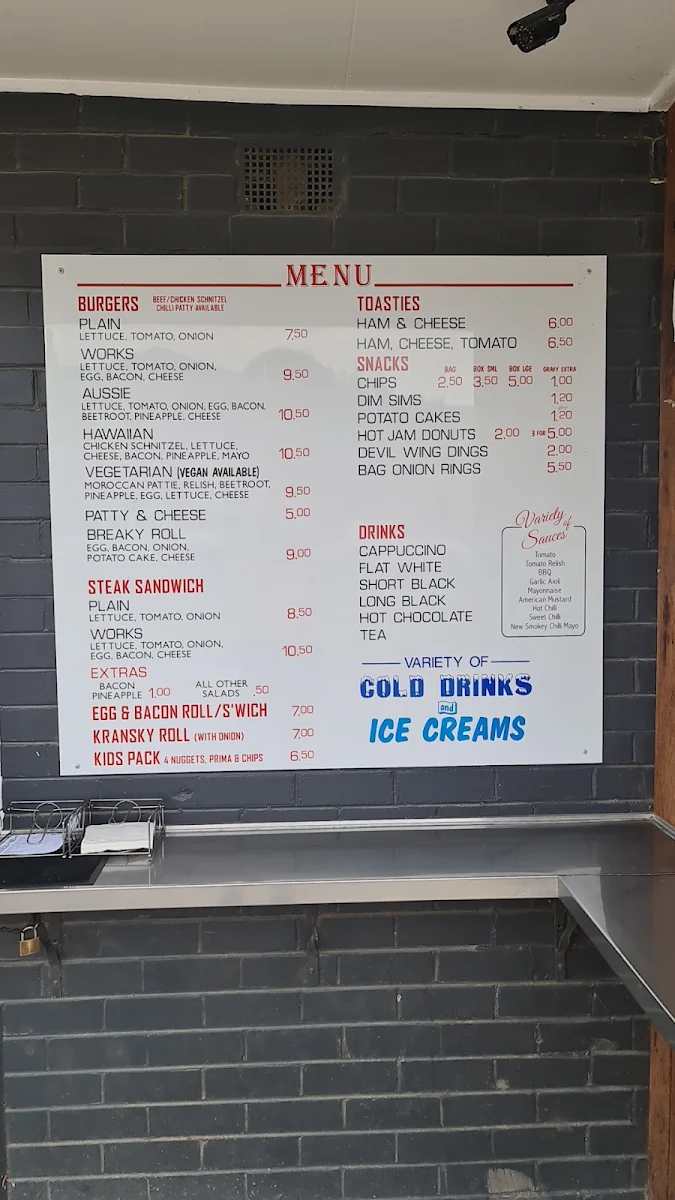 MENU
BURGERS BEEF/CHICKEN SCHNITZEL
CHILLI PATTY AVAILABLE
PLAIN
LETTUCE, TOMATO, ONION 7.50
WORKS
LETTUCE, TOMATO, ONION,
EGG, BACON, CHEESE 9.50
AUSSIE
LETTUCE, TOMATO, ONION, EGG, BACON,
BEETROOT, PINEAPPLE, CHEESE 10.50
HAWAIIAN
CHICKEN SCHNITZEL, LETTUCE,
CHEESE, BACON, PINEAPPLE, MAYO 10.50
VEGETARIAN (VEGAN AVAILABLE)
MOROCCAN PATTIE, RELISH, BEETROOT,
PINEAPPLE, EGG, LETTUCE, CHEESE 9.50
PATTY & CHEESE 5.00
BREAKY ROLL
EGG, BACON, ONION,
POTATO CAKE, CHEESE 9.00
STEAK SANDWICH
PLAIN
LETTUCE, TOMATO, ONION 8.50
WORKS
LETTUCE, TOMATO, ONION,
EGG, BACON, CHEESE 10.50
EXTRAS
BACON
PINEAPPLE 1.00
ALL OTHER
SALADS .50
EGG & BACON ROLL/S'WICH 7.00
KRANSKY ROLL (WITH ONION) 7.00
KIDS PACK 4 NUGGETS, PRIMA & CHIPS 6.50
TOASTIES
HAM & CHEESE 6.00
HAM, CHEESE, TOMATO 6.50
SNACKS BAG BOX SML BOX LGE GRAVY EXTRA
CHIPS 2.50 3.50 5.00 1.00
DIM SIMS 1.20
POTATO CAKES 1.20
HOT JAM DONUTS 2.00 3 FOR 5.00
DEVIL WING DINGS 2.00
BAG ONION RINGS 5.50
DRINKS
CAPPUCCINO
FLAT WHITE
SHORT BLACK
LONG BLACK
HOT CHOCOLATE
TEA
Variety of
Sauces
Tomato
Tomato Relish
BBQ
Garlic Aioli
Mayonnaise
American Mustard
Hot Chilli
Sweet Chilli
New Smokey Chilli Mayo
VARIETY OF
COLD DRINKS
and
ICE CREAMS